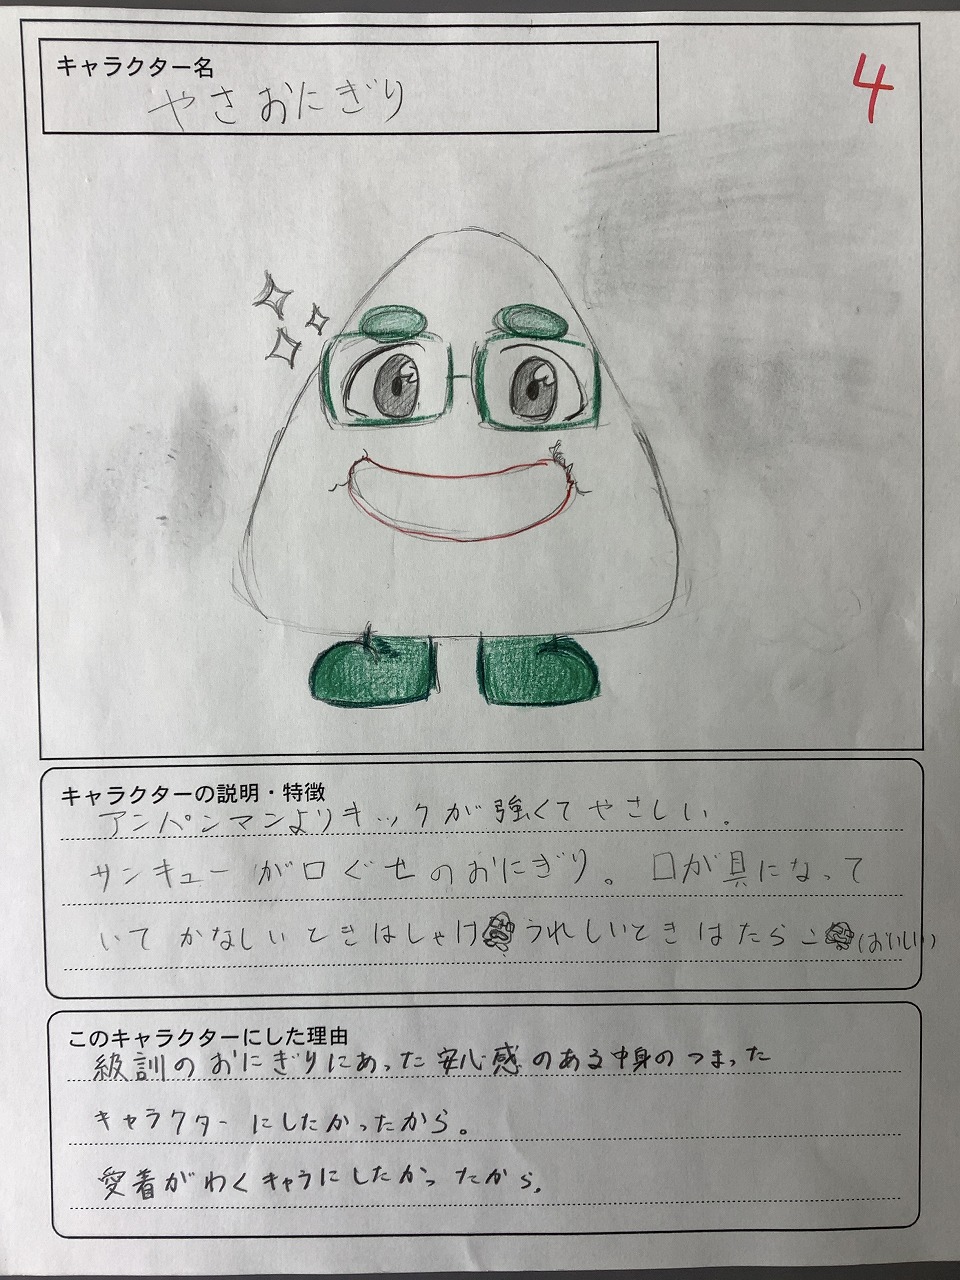 キャラクター名
4
やさおにぎり
キャラクターの説明・特徴
アンパンマンよりキックが強くてやさしい。
サンキューが口ぐせのおにぎり。口が具になって
いてかなしいときはしゃけうれしいときはたらこ(おいしい)
このキャラクターにした理由
級訓のおにぎりにあった安心感のある中身のつまった
キャラクターにしたかったから。
愛着がわくキャラにしたかったから。